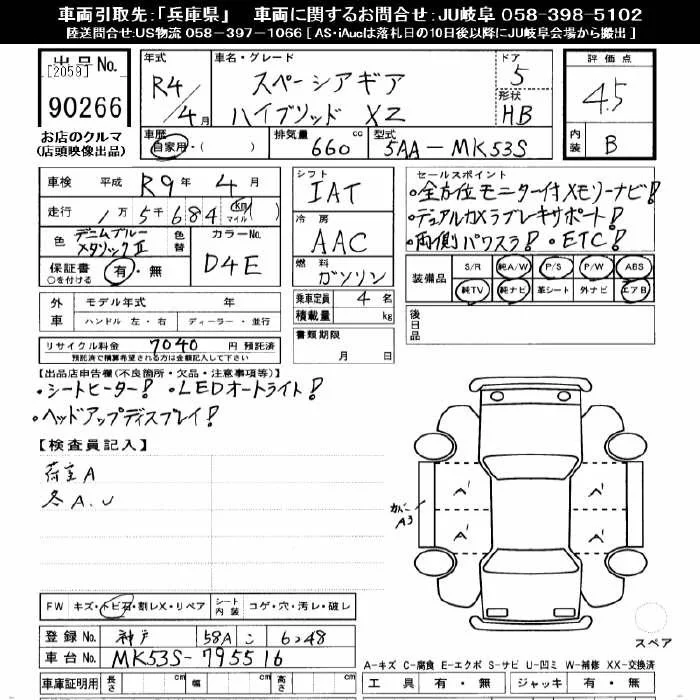 車両引取先:「兵庫県」 車両に関するお問合せ:JU岐阜 058-398-5102
陸送問合せ:US物流 058-397-1066 [ AS・iAucは落札日の10日後以降にJU岐阜会場から搬出 ]
出品No.
[2059]
90266
お店のクルマ
(店頭映像出品)
年式
R4/4月
車名・グレード
スペーシアギア
ハイブリッド XZ
ドア
5
形状
HB
評価点
4.5
内装
B
車歴
自家用・( )
排気量
660 cc
型式
5AA-MK53S
車検 平成 R9年 4月
走行 1万5千684 km マイル ( )
色 デニムブルーメタリックII 色替
カラーNo. D4E
保証書 有・無
○を付ける
外車 モデル年式 年
ハンドル 左・右 ディーラー・並行
リサイクル料金 7040 円 預託済
預託済で積算希望される方は金額記入して下さい
シフト
IAT
冷房
AAC
燃料
ガソリン
乗車定員 4名
積載量 kg
書類期限
月 日
セールスポイント
・全方位モニター付メモリーナビ!
・デュアルカメラブレーキサポート!
・両側パワスラ! ・ETC!
装備品 S/R 純A/W P/S P/W ABS
純TV 純ナビ 革シート 外ナビ エアB
後日品
【出品店申告欄(不良箇所・欠品・注意事項等)】
・シートヒーター! ・LEDオートライト!
・ヘッドアップディスプレイ!
【検査員記入】
荷室A
各A.U
A' A'
A' A'
カバー
A3
FW キズ・トビ石・割レX・リペア シート内装 コゲ・穴・汚レ・破レ
登録No. 神戸 581 こ 6248
車台No. MK53S-795516
車庫証明用 長さ cm 幅 cm 高さ cm
スペア
A-キズ C-腐食 E-エクボ S-サビ U-凹ミ W-補修 XX-交換済
工具 有・無 ジャッキ 有・無